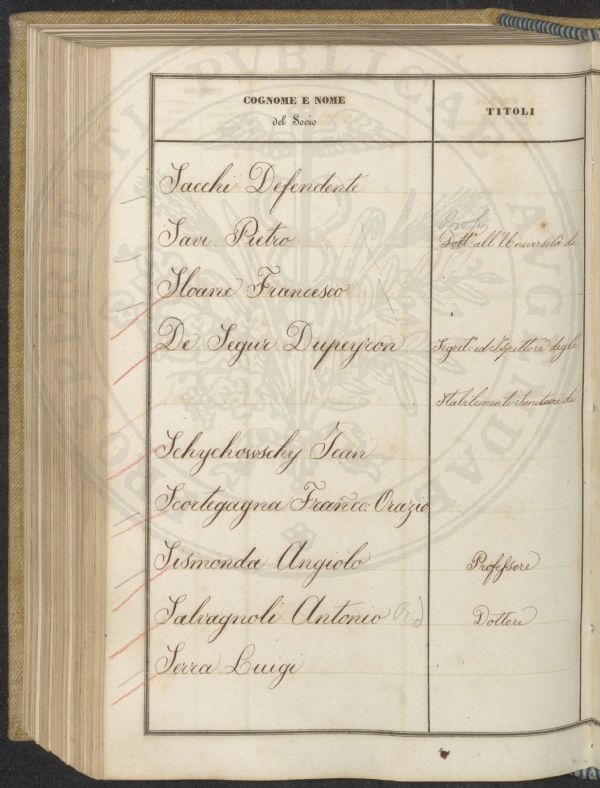 COGNOME E NOME
del Socio
TITOLI
Sacchi Defendente
Savi Pietro
Prof.
Dott.r all'Università di
Sloane Francesco
De Segur Dupeyron
Segret.o ed Ispettore degli
Stabilimenti Sanitari di
Schychowschy Jean
Scortegagna Franco: Orazio
Sismonda Angiolo
Professore
Salvagnoli Antonio
Dottore
Serra Luigi